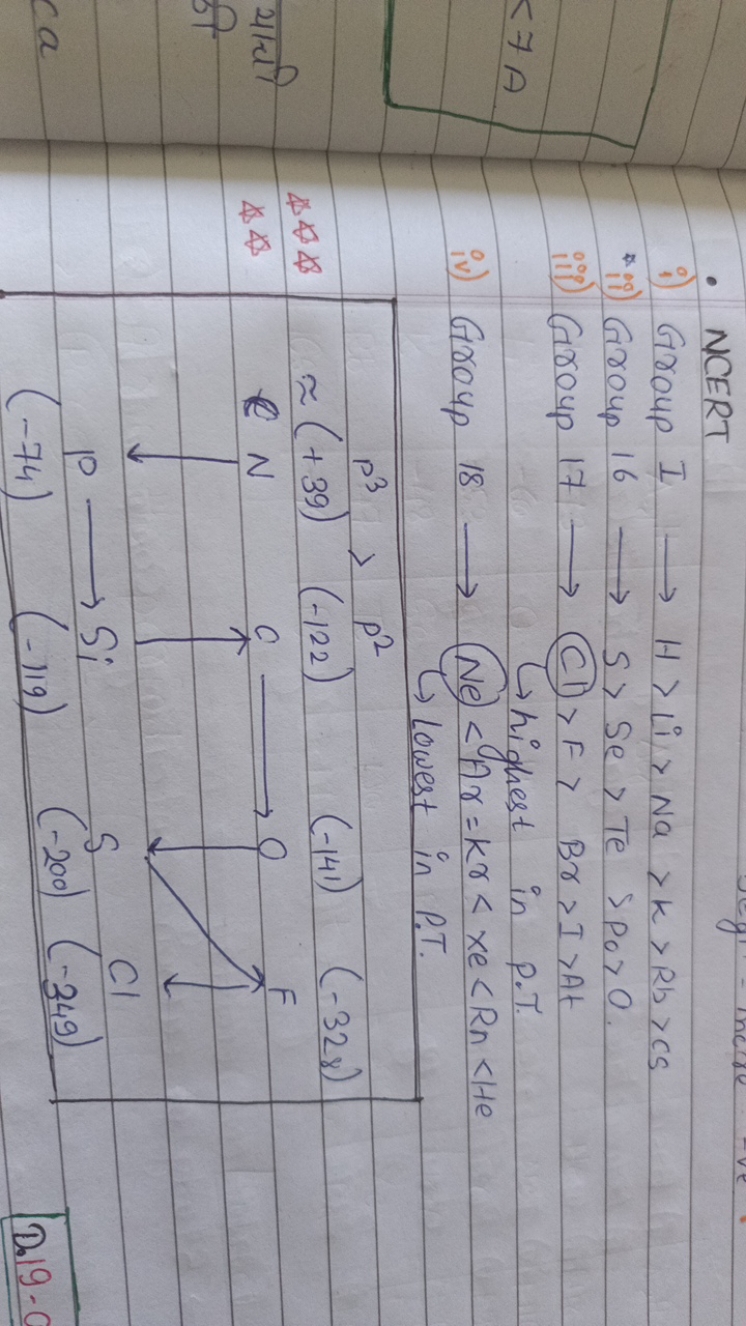 < 7 A
ca
• NCERT
i) Group I → H > Li > Na > K > Rb > Cs
* ii) Group 16 → S > Se > Te > Po > O.
iii) Group 17 → Cl > F > Br > I > At
↳ highest in p.T.
iv) Group 18 → Ne < Ar = Kr < Xe < Rn < He
↳ lowest in P.T.
p³ > p²
≈ (+39) (-122) (-141) (-328)
N C → O F
P → Si S Cl
(-74) (-119) (-200) (-349)
D.19-0